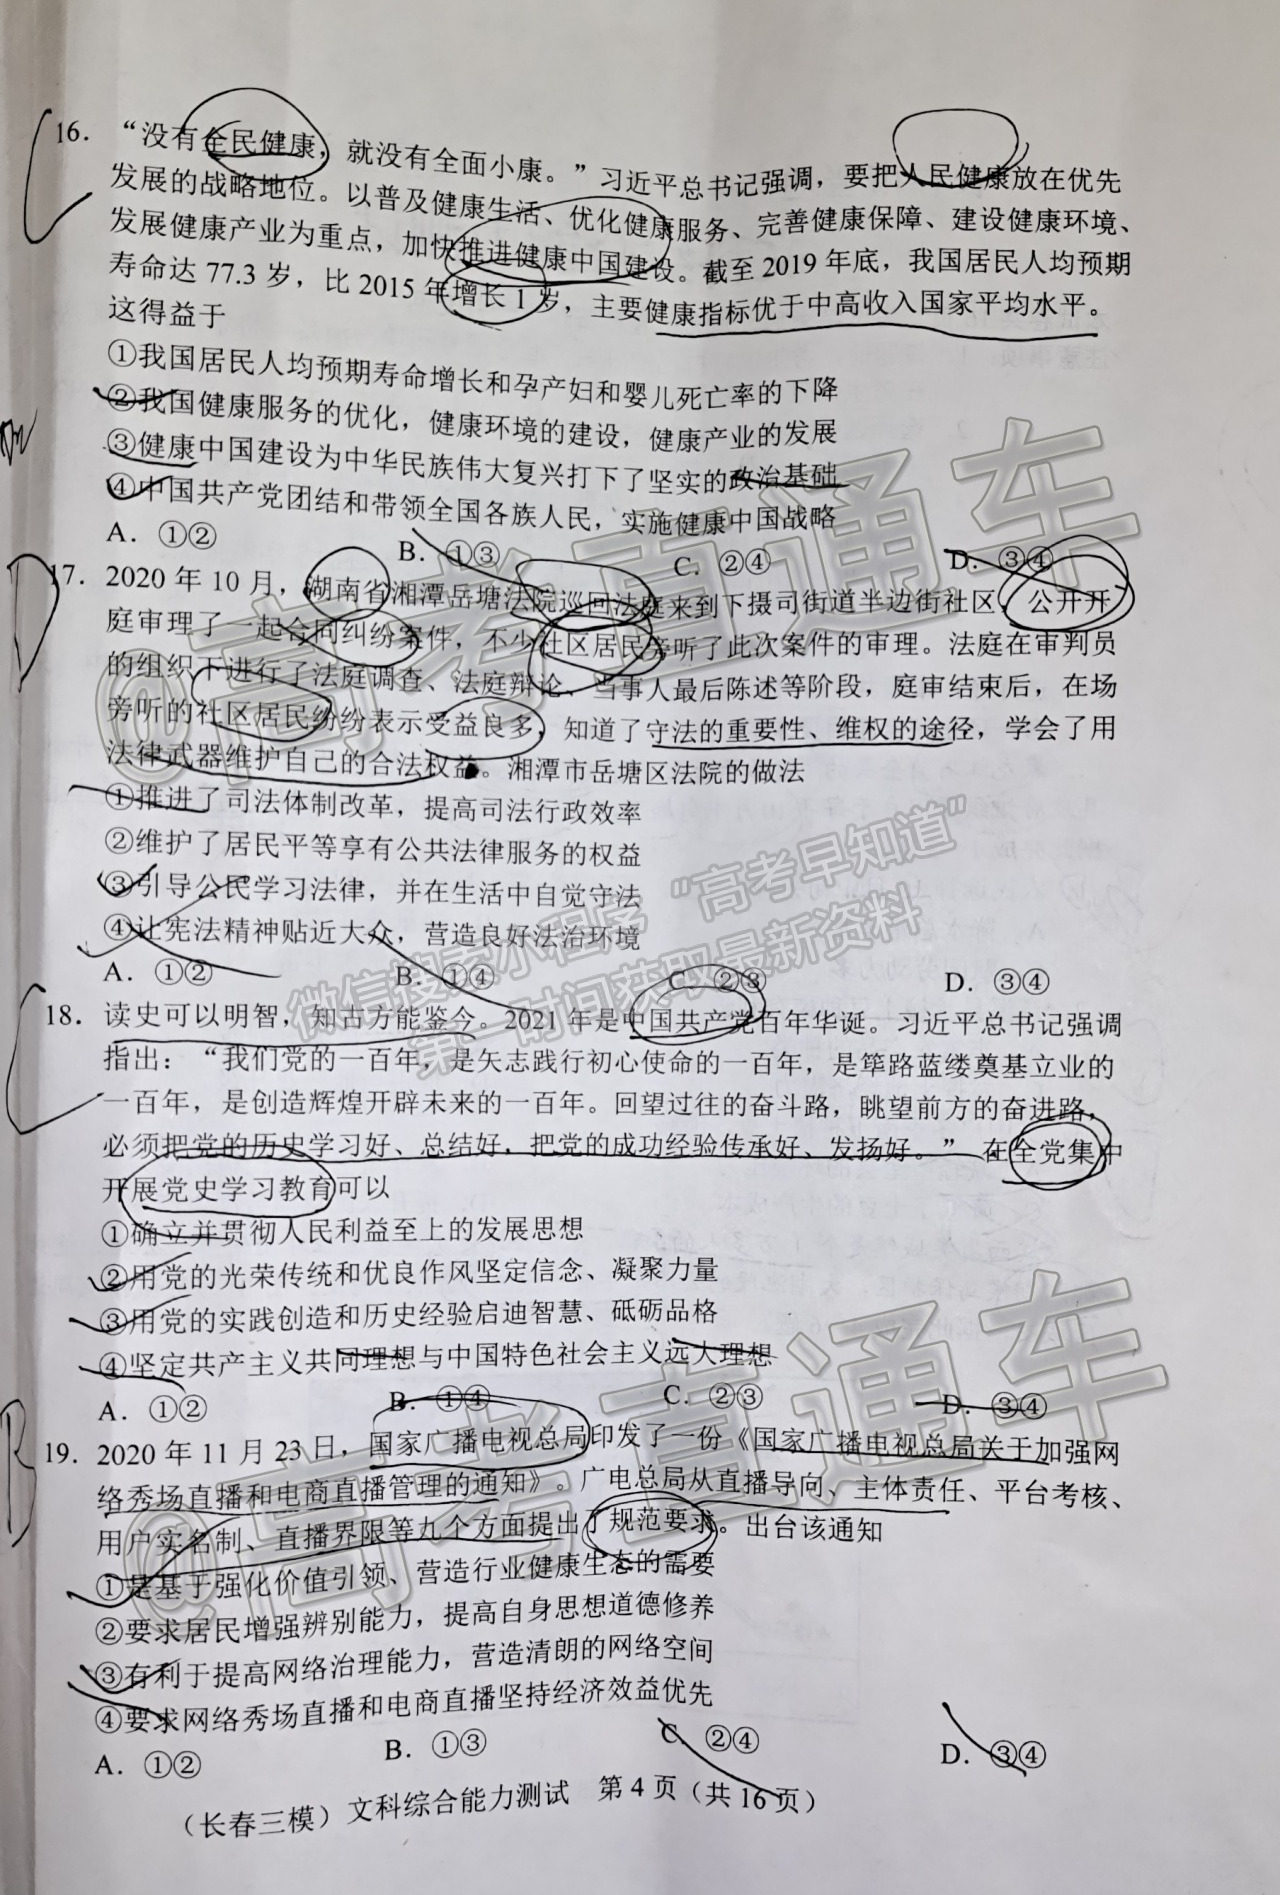 16．“没有全民健康，就没有全面小康。”习近平总书记强调，要把人民健康放在优先
发展的战略地位。以普及健康生活、优化健康服务、完善健康保障、建设健康环境、
发展健康产业为重点，加快推进健康中国建设。截至 2019 年底，我国居民人均预期
寿命达 77.3 岁，比 2015 年增长 1 岁，主要健康指标优于中高收入国家平均水平。
这得益于
①我国居民人均预期寿命增长和孕产妇和婴儿死亡率的下降
②我国健康服务的优化，健康环境的建设，健康产业的发展
③健康中国建设为中华民族伟大复兴打下了坚实的政治基础
④中国共产党团结和带领全国各族人民，实施健康中国战略
A．①② B．①③ C．②④ D．③④
17．2020 年 10 月，湖南省湘潭岳塘法院巡回法庭来到下摄司街道半边街社区，公开开
庭审理了一起合同纠纷案件，不少社区居民旁听了此次案件的审理。法庭在审判员
的组织下进行了法庭调查、法庭辩论、当事人最后陈述等阶段，庭审结束后，在场
旁听的社区居民纷纷表示受益良多，知道了守法的重要性、维权的途径，学会了用
法律武器维护自己的合法权益。湘潭市岳塘区法院的做法
①推进了司法体制改革，提高司法行政效率
②维护了居民平等享有公共法律服务的权益
③引导公民学习法律，并在生活中自觉守法
④让宪法精神贴近大众，营造良好法治环境
A．①② B．①④ C．②③ D．③④
18．读史可以明智，知古方能鉴今。2021 年是中国共产党百年华诞。习近平总书记强调
指出：“我们党的一百年，是矢志践行初心使命的一百年，是筚路蓝缕奠基立业的
一百年，是创造辉煌开辟未来的一百年。回望过往的奋斗路，眺望前方的奋进路，
必须把党的历史学习好、总结好，把党的成功经验传承好、发扬好。”在全党集中
开展党史学习教育可以
①确立并贯彻人民利益至上的发展思想
②用党的光荣传统和优良作风坚定信念、凝聚力量
③用党的实践创造和历史经验启迪智慧、砥砺品格
④坚定共产主义共同理想与中国特色社会主义远大理想
A．①② B．①④ C．②③ D．③④
19．2020 年 11 月 23 日，国家广播电视总局印发了一份《国家广播电视总局关于加强网
络秀场直播和电商直播管理的通知》。广电总局从直播导向、主体责任、平台考核、
用户实名制、直播界限等九个方面提出了规范要求。出台该通知
①是基于强化价值引领、营造行业健康生态的需要
②要求居民增强辨别能力，提高自身思想道德修养
③有利于提高网络治理能力，营造清朗的网络空间
④要求网络秀场直播和电商直播坚持经济效益优先
A．①② B．①③ C．②④ D．③④
（长春三模）文科综合能力测试 第 4 页（共 16 页）
@高考直通车
微信搜索小程序“高考早知道”
第一时间获取最新资料
@高考直通车